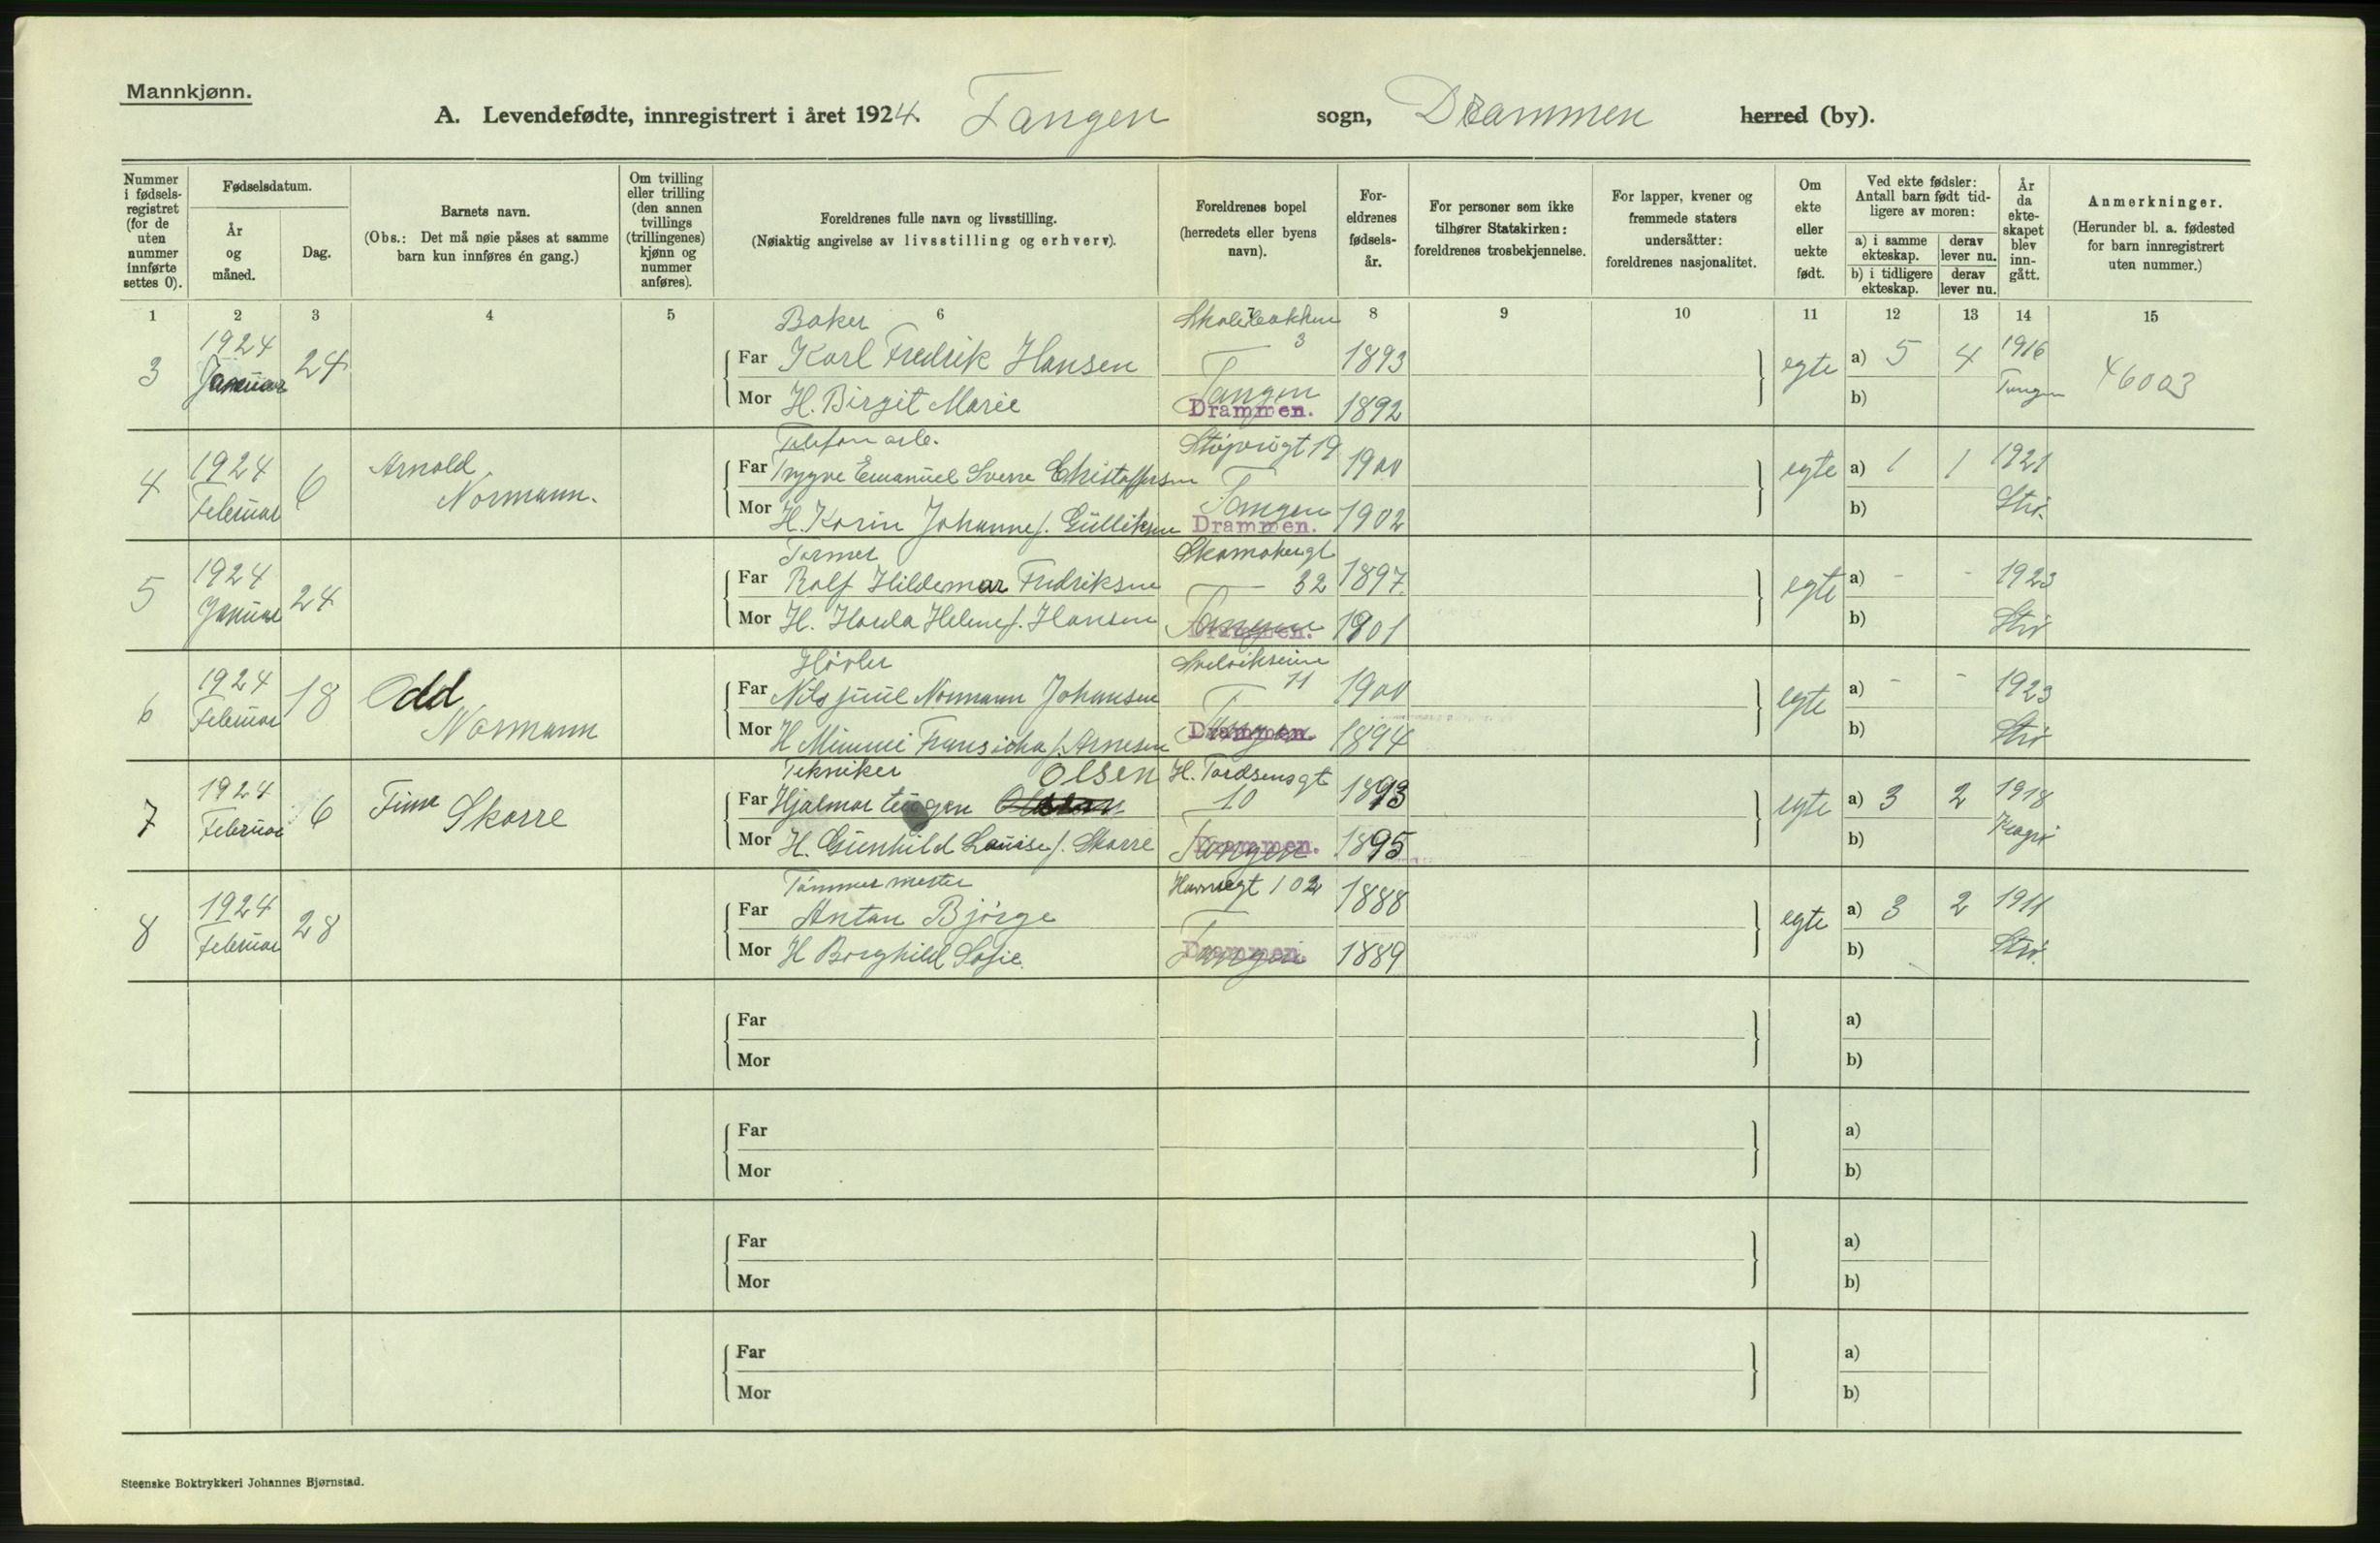 Mannkjønn.
A. Levendefødte, innregistrert i året 1924. Tangen sogn, Drammen herred (by).
Nummer i fødsels-registret (for de uten nummer innførte settes 0).
Fødselsdatum.
År og måned.
Dag.
Barnets navn.
(Obs.: Det må nøie påses at samme barn kun innføres én gang.)
Om tvilling eller trilling (den annen tvillings (trillingenes) kjønn og nummer anføres).
Foreldrenes fulle navn og livsstilling.
(Nøiaktig angivelse av livsstilling og erhverv).
Foreldrenes bopel (herredets eller byens navn).
For-eldrenes fødsels-år.
For personer som ikke tilhører Statskirken: foreldrenes trosbekjennelse.
For lapper, kvener og fremmede staters undersåtter: foreldrenes nasjonalitet.
Om ekte eller uekte født.
Ved ekte fødsler: Antall barn født tid-ligere av moren:
a) i samme ekteskap.
derav lever nu.
b) i tidligere ekteskap.
derav lever nu.
År da ekte-skapet blev inn-gått.
Anmerkninger.
(Herunder bl. a. fødested for barn innregistrert uten nummer.)
1 2 3 4 5 6 7 8 9 10 11 12 13 14 15
Baker
3 1924 Januar 24 Far Karl Fredrik Hansen 3 1893 egte a) 5 4 1916
Mor H. Birgit Marie Tangen Drammen. 1892 b) Tangen 46003
Telefonarb.
4 1924 Februar 6 Arnold Normann. Far Trygve Emanuel Sverre Christoffersen 19 1900 egte a) 1 1 1921
Mor H. Karin Johanne f. Gulliksen Tangen Drammen. 1902 b) Strø.
Former
5 1924 Januar 24 Far Rolf Hildemar Fredriksen 32 1897 egte a) - - 1923
Mor H. Helene f. Hansen Tangen Drammen. 1901 b) Strø
Høvler Svelvikveien
6 1924 Februar 18 Odd Normann Far Nils Juul Normann Johansen 1900 egte a) - - 1923
Mor H Mimmi f. Arnesen Tangen Drammen. 1894 b) Strø
Tekniker Olsen H. Tordsensgt
7 1924 Februar 6 Finn Skarre Far Hjalmar Olsen 10 1893 egte a) 3 2 1918
Mor H. Gunhild Louise f. Skarre Tangen Drammen. 1895 b) Kragrø
Tømmermester Havnegt 102
8 1924 Februar 28 Far Anton Bjørge 1888 egte a) 3 2 1911
Mor H Borghild Sofie Tangen Drammen. 1889 b) Strø.
Far a)
Mor b)
Far a)
Mor b)
Far a)
Mor b)
Far a)
Mor b)
Steenske Boktrykkeri Johannes Bjørnstad.